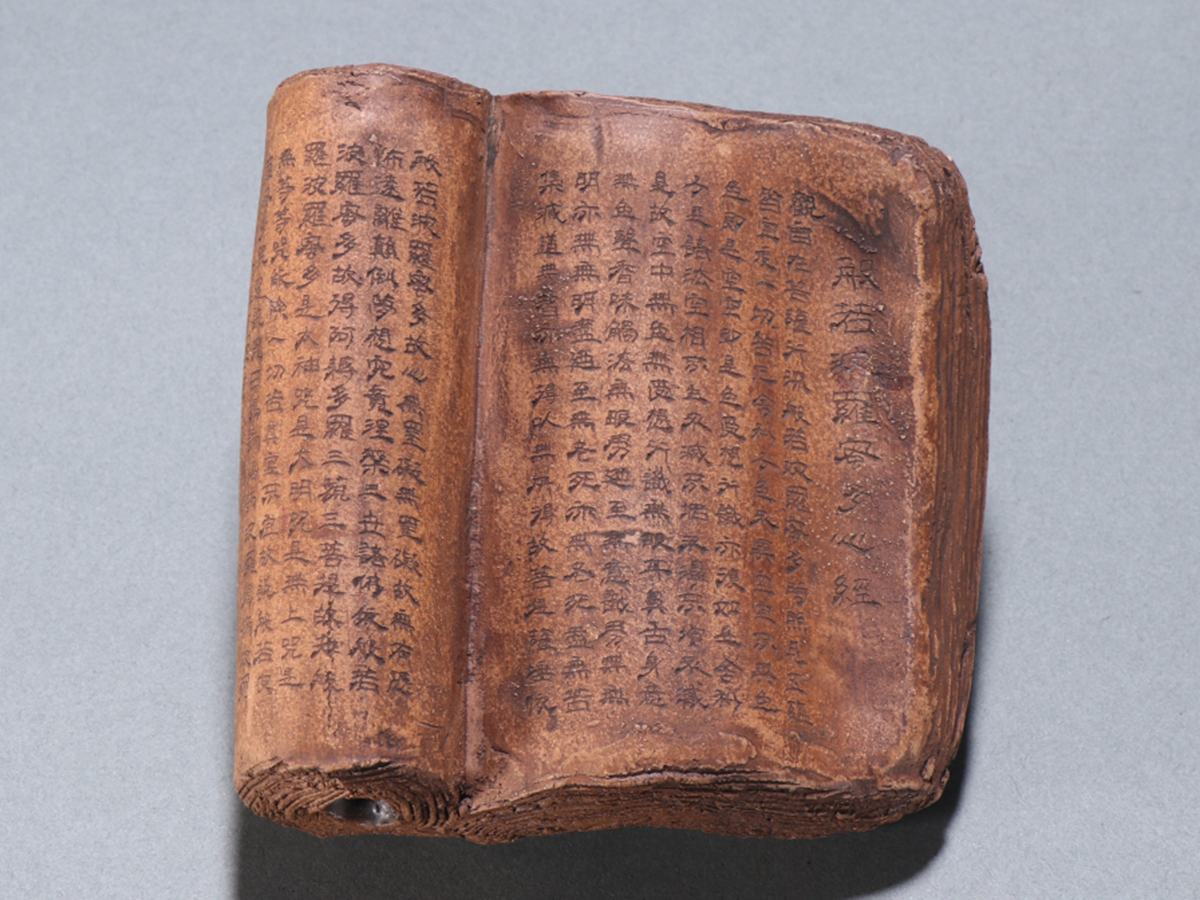 般若波羅密多心經
觀自在菩薩行深般若波羅密多時照見五蘊
皆空度一切苦厄舍利子色不異空空不異色
色即是空空即是色受想行識亦復如是舍利
子是諸法空相不生不滅不垢不淨不增不減
是故空中無色無受想行識無眼耳鼻舌身意
無色聲香味觸法無眼界迺至無意識界無無
明亦無無明盡迺至無老死亦無老死盡無苦
集滅道無智亦無得以無所得故菩提薩埵依
般若波羅密多故心無罣礙無罣礙故無有恐
怖遠離顛倒夢想究竟涅槃三世諸佛依般若
波羅密多故得阿耨多羅三藐三菩提故知般
波羅密多是大神咒是大明咒是無上咒是
無等等咒能除一切苦真實不虛故說般若波